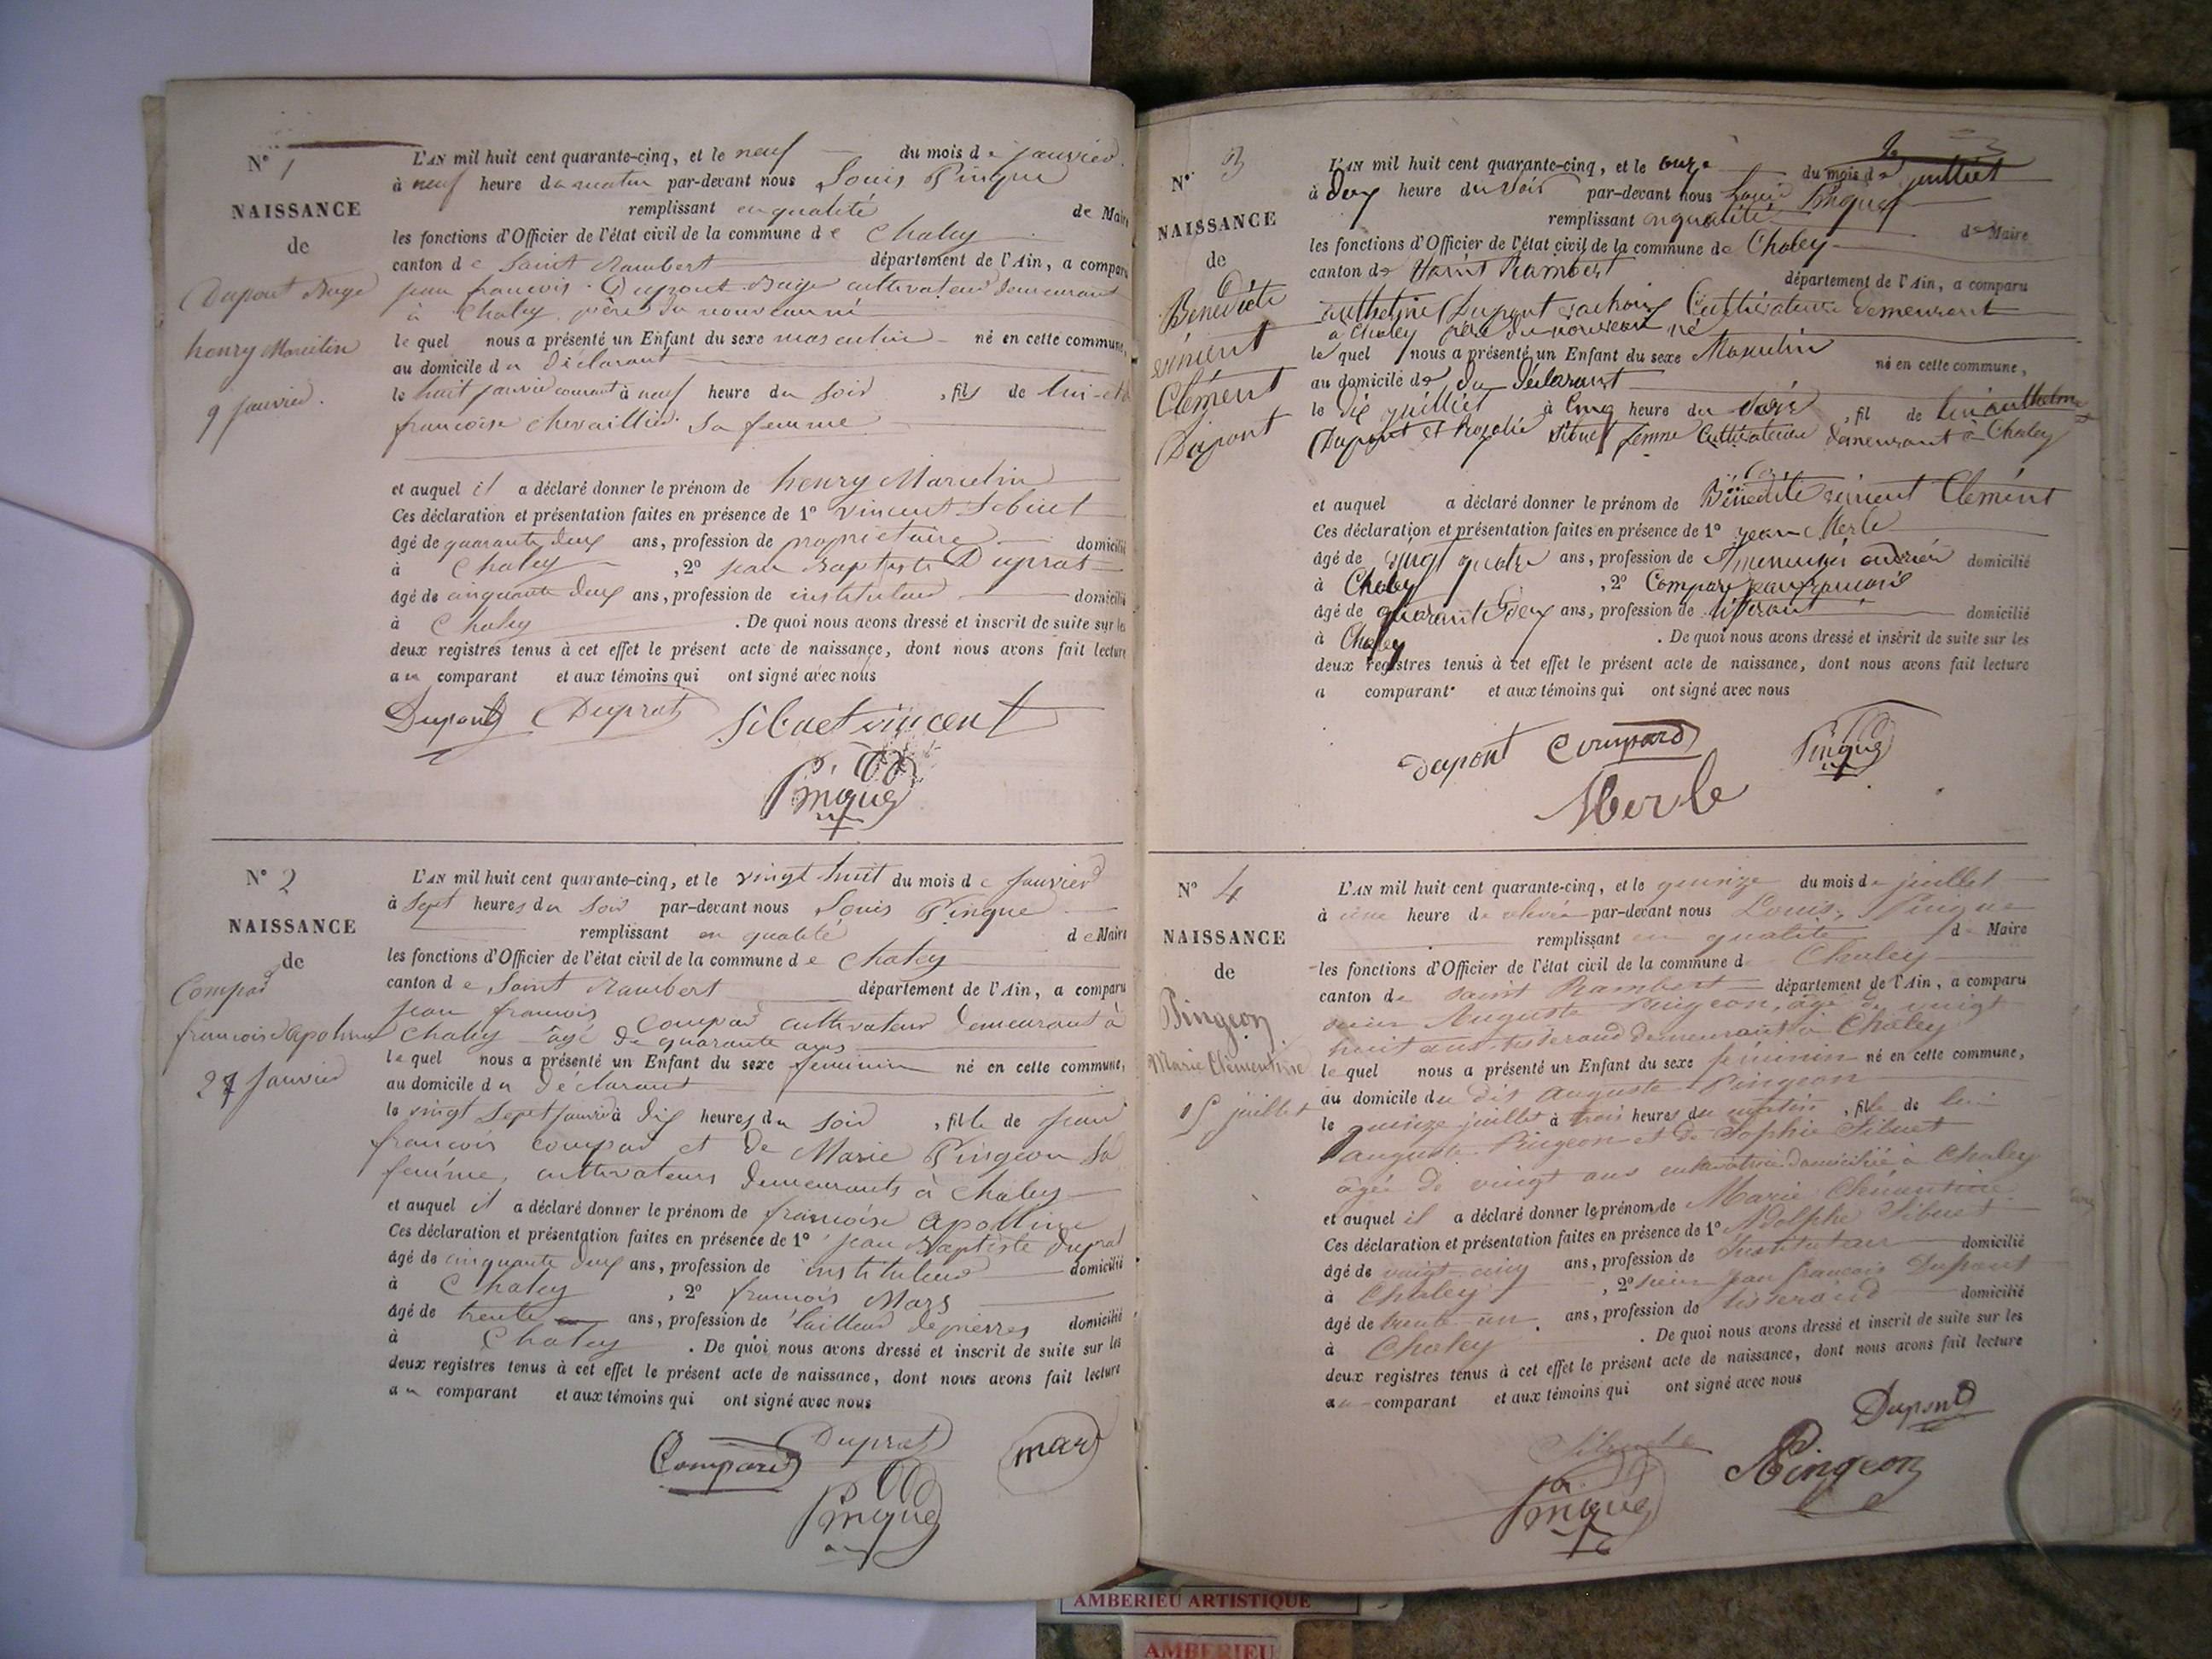 N° 1
NAISSANCE
de
Dupont Buge
henry Marcelin
9 janvier.
L'AN mil huit cent quarante-cinq, et le neuf du mois de janvier
à neuf heure du matin par-devant nous Louis Pingue
remplissant en qualité de Maire
les fonctions d'Officier de l'état civil de la commune de Chaley
canton de Saint Rambert département de l'Ain, a comparu
jean francois Dupont Buge cultivateur demeurant
à Chaley père du nouveau né
lequel nous a présenté un Enfant du sexe masculin né en cette commune,
au domicile du déclarant
le huit janvier courant à neuf heure du soir , fils de lui et de
francoise chevaillier sa femme
et auquel il a déclaré donner le prénom de henry Marcelin
Ces déclaration et présentation faites en présence de 1° vincent Sibuet
âgé de quarante deux ans, profession de propriétaire domicilié
à Chaley , 2° jean Baptiste Duprat
âgé de cinquante deux ans, profession de instituteur domicilié
à Chaley . De quoi nous avons dressé et inscrit de suite sur les
deux registres tenus à cet effet le présent acte de naissance, dont nous avons fait lecture
au comparant et aux témoins qui ont signé avec nous
Dupont Duprat Sibuet vincent
Pingue
N° 2
NAISSANCE
de
Compad
francoise apoline
27 janvier
L'AN mil huit cent quarante-cinq, et le vingt huit du mois de janvier
à sept heures du soir par-devant nous Louis Pingue
remplissant en qualité de Maire
les fonctions d'Officier de l'état civil de la commune de Chaley
canton de Saint Rambert département de l'Ain, a comparu
jean francois compad cultivateur demeurant à
Chaley âgé de quarante ans
lequel nous a présenté un Enfant du sexe feminin né en cette commune,
au domicile du déclarant
le vingt sept janvier à dix heures du soir , fille de jean
francois compad et de Marie Pingeon sa
femme, cultivateurs demeurants à chaley
et auquel il a déclaré donner le prénom de francoise apolline
Ces déclaration et présentation faites en présence de 1° jean Baptiste duprat
âgé de cinquante deux ans, profession de instituteur domicilié
à Chaley , 2° francois Mars
âgé de trente ans, profession de tailleur de pierres domicilié
à Chaley . De quoi nous avons dressé et inscrit de suite sur les
deux registres tenus à cet effet le présent acte de naissance, dont nous avons fait lecture
au comparant et aux témoins qui ont signé avec nous
Compard Duprat mars
Pingue
N° 3
NAISSANCE
de
Bénédicte
vincent
Clément
Dupont
L'AN mil huit cent quarante-cinq, et le onze du mois de juilliet
à dix heure du soir par-devant nous Louis Pingue
remplissant en qualité de Maire
les fonctions d'Officier de l'état civil de la commune de Chaley
canton de Saint Rambert département de l'Ain, a comparu
anthelme Dupont Cultivateur demeurant
a Chaley père du nouveau né
lequel nous a présenté un Enfant du sexe Masculin né en cette commune,
au domicile de du déclarant
le dix juilliet à cinq heure du soir , fil de lui anthelme
Dupont et Rozalie Sibuet femme Cultivateur demeurant à Chaley
et auquel a déclaré donner le prénom de Bénédite vincent Clemént
Ces déclaration et présentation faites en présence de 1° jean Merle
âgé de vingt quatre ans, profession de menuisier domicilié
à Chaley , 2° Compard jean francois
âgé de quarante deux ans, profession de tisserant domicilié
à Chaley . De quoi nous avons dressé et inscrit de suite sur les
deux registres tenus à cet effet le présent acte de naissance, dont nous avons fait lecture
a comparant et aux témoins qui ont signé avec nous
dupont Compard Pingue
Merle
N° 4
NAISSANCE
de
Pingeon
Marie Clémentine
15 juillet
L'AN mil huit cent quarante-cinq, et le quinze du mois de juillet
à une heure de par-devant nous Louis Pingue
remplissant en qualité de Maire
les fonctions d'Officier de l'état civil de la commune d Chaley
canton de Saint Rambert département de l'Ain, a comparu
sieur Auguste Pingeon, âgé de vingt
huit ans, tisserand demeurant à Chaley
lequel nous a présenté un Enfant du sexe féminin né en cette commune,
au domicile du dit Auguste Pingeon
le quinze juillet à trois heures du matin , fille de lui
auguste Pingeon et de Sophie Sibuet
âgée de vingt ans cultivatrice domiciliée à Chaley
et auquel il a déclaré donner le prénom de Marie Clémentine
Ces déclaration et présentation faites en présence de 1° Adolphe Sibuet
âgé de vingt cinq ans, profession de Instituteur domicilié
à Chaley , 2° sieur jean francois Dupont
âgé de trente un ans, profession de tisserand domicilié
à Chaley . De quoi nous avons dressé et inscrit de suite sur les
deux registres tenus à cet effet le présent acte de naissance, dont nous avons fait lecture
au comparant et aux témoins qui ont signé avec nous
Dupont
Pingeon
Pingue
AMBERIEU ARTISTIQUE
AMBERIEU